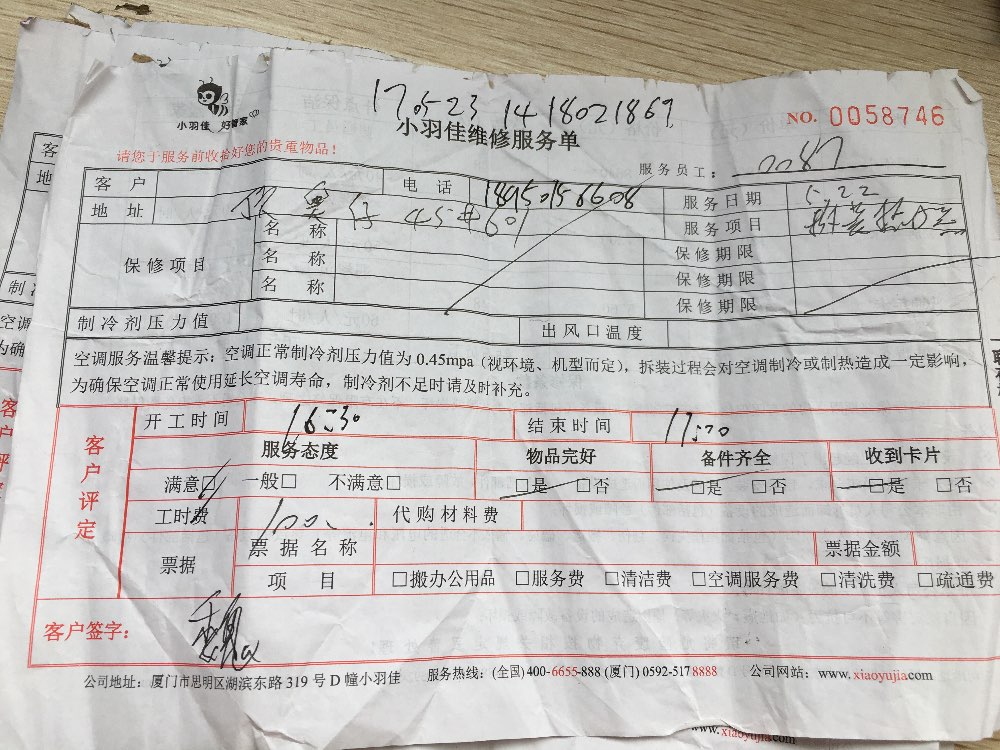 170523 1418021869
小羽佳 好管家
小羽佳维修服务单
NO. 0058746
请您于服务前收拾好您的贵重物品！
服务员工： 0087
客户 电话 18950156608 服务日期 5.22
地址 45#601 服务项目
保修项目 名称 保修期限
名称 保修期限
名称 保修期限
制冷剂压力值 出风口温度
空调服务温馨提示：空调正常制冷剂压力值为0.45mpa（视环境、机型而定），拆装过程会对空调制冷或制热造成一定影响，
为确保空调正常使用延长空调寿命，制冷剂不足时请及时补充。
客户评定
开工时间 16:30 结束时间 17:20
服务态度 物品完好 备件齐全 收到卡片
满意□ 一般□ 不满意□ □是 □否 □是 □否 □是 □否
工时费 100 代购材料费
票据 票据名称 票据金额
项目 □搬办公用品 □服务费 □清洁费 □空调服务费 □清洗费 □疏通费
客户签字：
公司地址：厦门市思明区湖滨东路319号D幢小羽佳 服务热线：(全国)400-6655-888 (厦门) 0592-5178888 公司网站：www.xiaoyujia.com
www.xiaoyujia.com